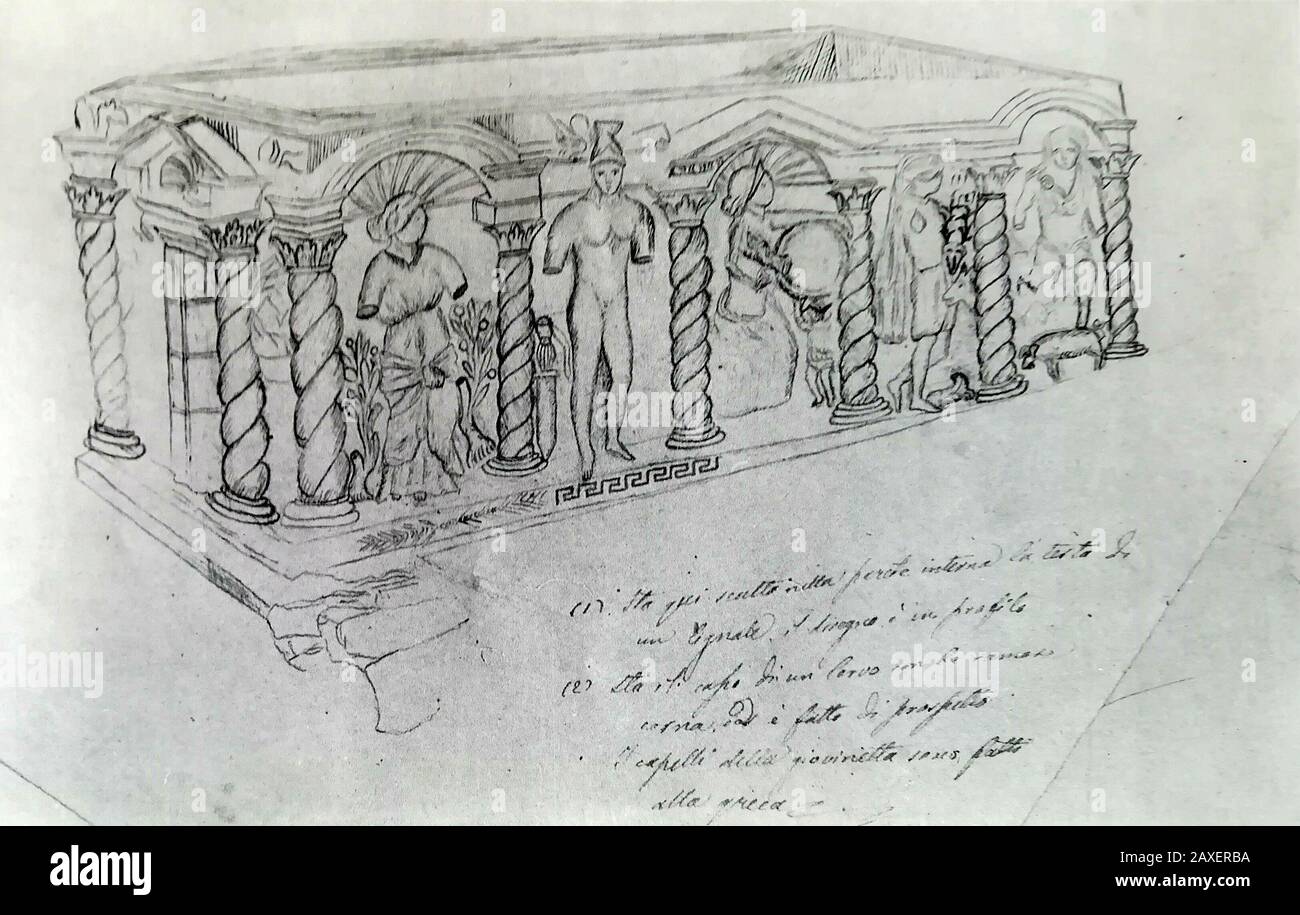 (1). Sta qui scolto nella parete interna la testa di
un Cignale, il disegno è in profilo
(2) Sta il capo di un Cervo con le ramose
corna, ed è fatto di prospetto
I capelli della giovinetta sono fatti
alla greca
a
alamy
alamy
Image ID: 2AXERBA
www.alamy.com